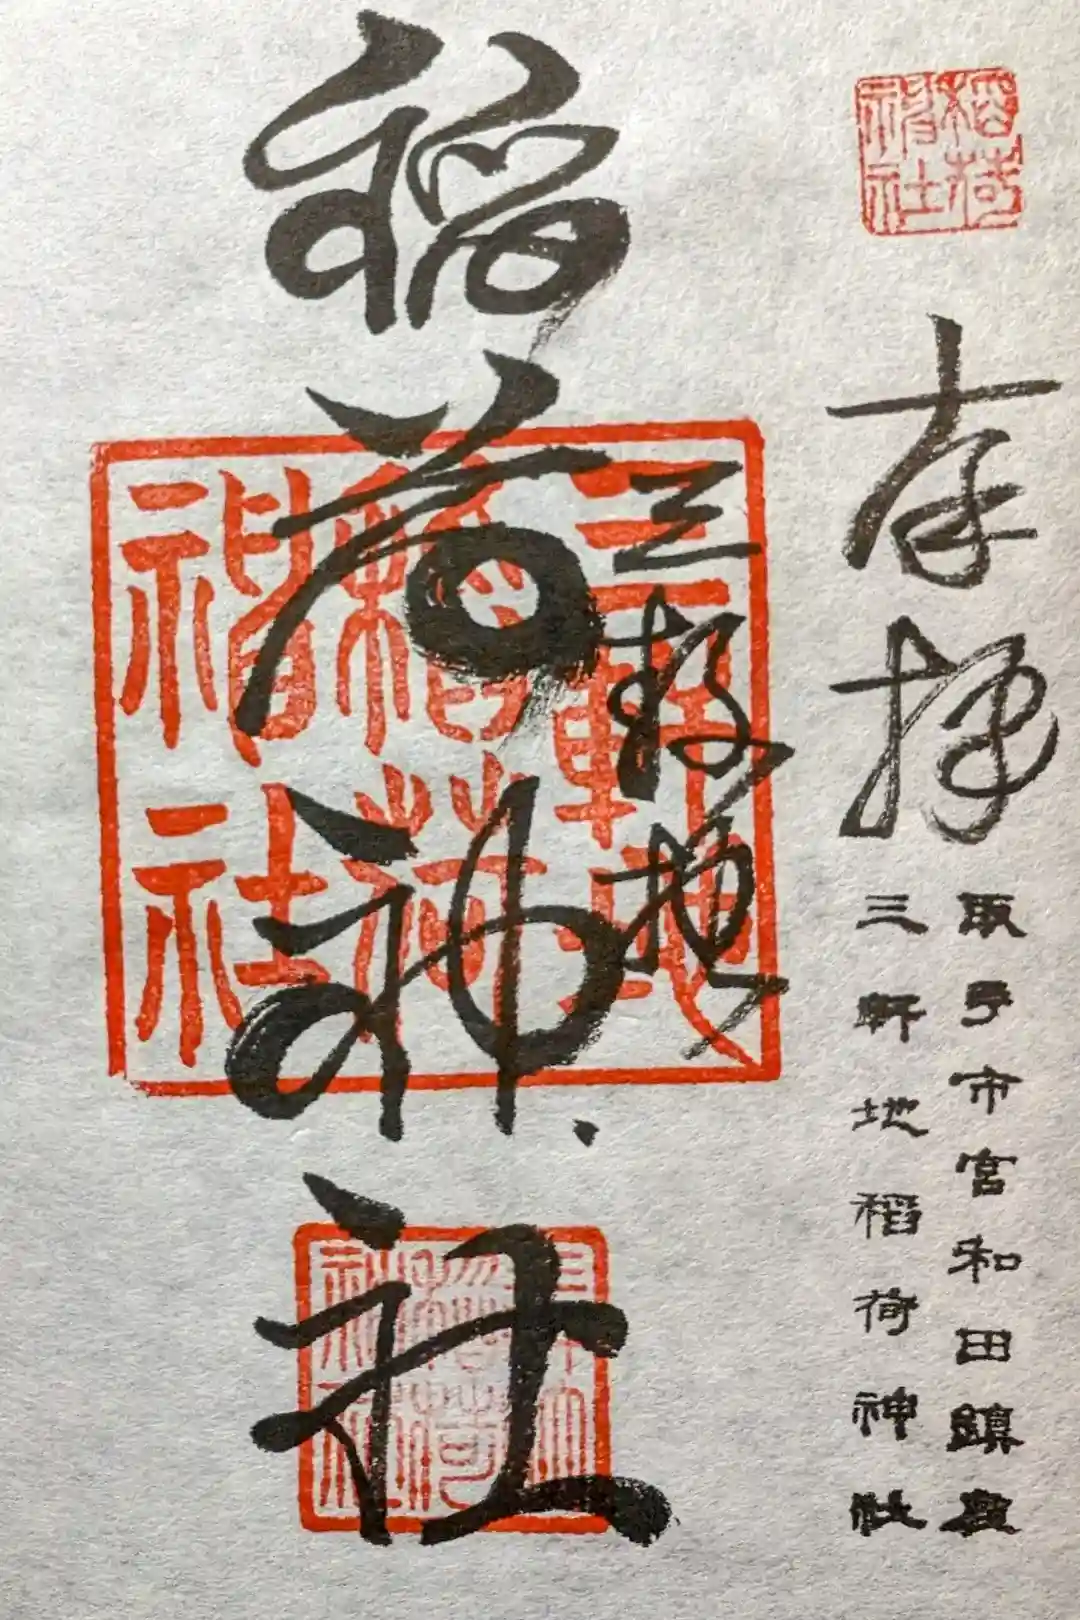 稲荷
神社
奉拝
取手市宮和田鎮座
三軒地稲荷神社
三軒地
稲荷神社
三軒地
稲荷
神社
稲荷
神社